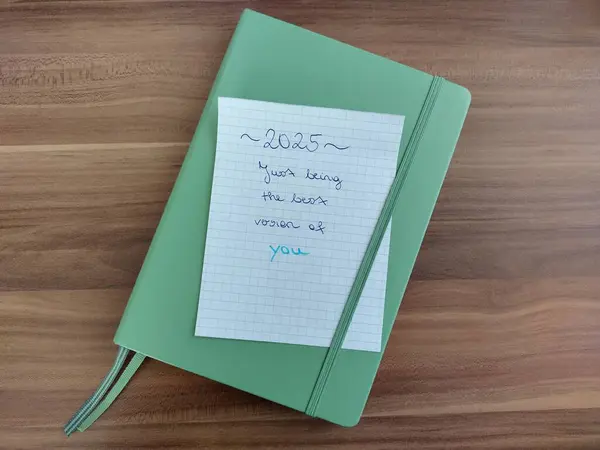 ~2025~
Just being
the best
vorsion of
you